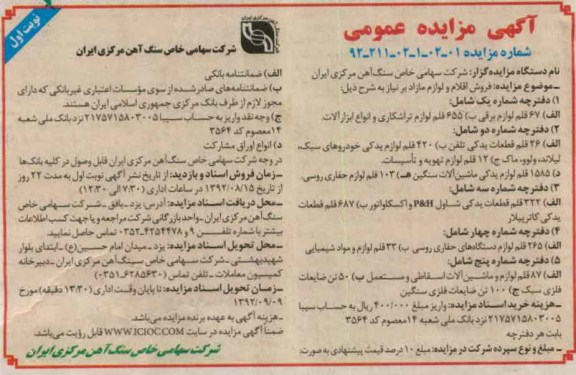 آگهی مزایده عمومی
شماره مزایده ۰۱-۰۲-۱-۰۲-۲۱۱-۹۲
نام دستگاه مزایده‌گزار: شرکت سهامی خاص سنگ‌آهن مرکزی ایران
ـ موضوع مزایده: فروش اقلام و لوازم مازاد بر نیاز به شرح ذیل:
۱) دفترچه شماره یک شامل:
الف) ۶۷ قلم لوازم برقی ب) ۶۵۵ قلم لوازم تراشکاری و انواع ابزارآلات.
۲) دفترچه شماره دو شامل:
الف) ۲۶ قلم قطعات یدکی تلفن ب) ۴۲۰ قلم لوازم یدکی خودروهای سبک،
لیلاند، ولوو، ماک ج) ۱۲ قلم لوازم تهویه و تأسیسات.
د) ۱۵۸۵ قلم لوازم یدکی ماشین‌آلات سنگین هـ) ۱۰۳ قلم لوازم حفاری روسی.
۳) دفترچه شماره سه شامل:
الف) ۳۲۲ قلم قطعات یدکی شاول P&H و اکسکاواتور ب) ۶۸۷ قلم قطعات
یدکی کاترپیلار
۴) دفترچه شماره چهار شامل:
الف) ۲۶۵ قلم لوازم دستگاههای حفاری روسی ب) ۳۳ قلم لوازم و مواد شیمیایی
۵) دفترچه شماره پنج شامل:
الف) ۸۷ قلم لوازم و ماشین‌آلات اسقاطی و مستعمل ب) ۵۰ تن ضایعات
فلزی سبک ج) ۱۰۰ تن ضایعات فلزی سنگین
ـ هزینه خرید اسناد مزایده: واریز مبلغ ۴۰۰/۰۰۰ ریال به حساب سیبا
۲۱۷۵۷۱۵۸۰۳۰۰۵ نزد بانک ملی شعبه ۱۴ معصوم کد ۳۵۶۴
بابت هر دفترچه
ـ مبلغ و نوع سپرده شرکت در مزایده: مبلغ ۱۰ درصد قیمت پیشنهادی به صورت:
نوبت اول
شرکت سهامی خاص سنگ آهن مرکزی ایران
الف) ضمانتنامه بانکی
ب) ضمانتنامه‌های صادرشده از سوی مؤسسات اعتباری غیربانکی که دارای
مجوز لازم از طرف بانک مرکزی جمهوری اسلامی ایران هستند.
ج) وجه نقد واریز به حساب سیبا ۲۱۷۵۷۱۵۸۰۳۰۰۵ نزد بانک ملی شعبه
۱۴ معصوم کد ۳۵۶۴
د) انواع اوراق مشارکت
در وجه شرکت سهامی خاص سنگ‌آهن مرکزی ایران قابل وصول در کلیه بانک‌ها
ـ زمان فروش اسناد و بازدید: از تاریخ نشر آگهی نوبت اول به مدت ۲۲ روز
از تاریخ ۱۳۹۲/۰۸/۱۵ در ساعات اداری (۷:۳۰ الی ۱۲:۳۰)
ـ محل دریافت اسناد مزایده: آدرس: یزد ـ بافق ـ شرکت سهامی خاص
سنگ‌آهن مرکزی ایران ـ واحد بازرگانی شرکت مراجعه و یا جهت کسب اطلاعات
بیشتر با شماره تلفن ۹ و ۴۲۵۴۴۷۸-۰۳۵۲ تماس حاصل نمایید.
ـ محل تحویل اسناد مزایده: یزد ـ میدان امام حسین(ع) ـ ابتدای بلوار
شهیدبهشتی ـ شرکت سهامی خاص سنگ‌آهن مرکزی ایران ـ دبیرخانه
کمیسیون معاملات ـ تلفن تماس (۶۲۸۵۶۳۰-۰۳۵۱)
ـ زمان تحویل اسناد مزایده: تا پایان وقت اداری (۱۳:۳۰ دقیقه) مورخ
۱۳۹۲/۰۹/۰۹
ـ هزینه آگهی به عهده برنده مزایده می‌باشد.
ضمناً آگهی مزایده در سایت WWW.ICIOC.COM قابل رؤیت می‌باشد.
شرکت سهامی خاص سنگ آهن مرکزی ایران